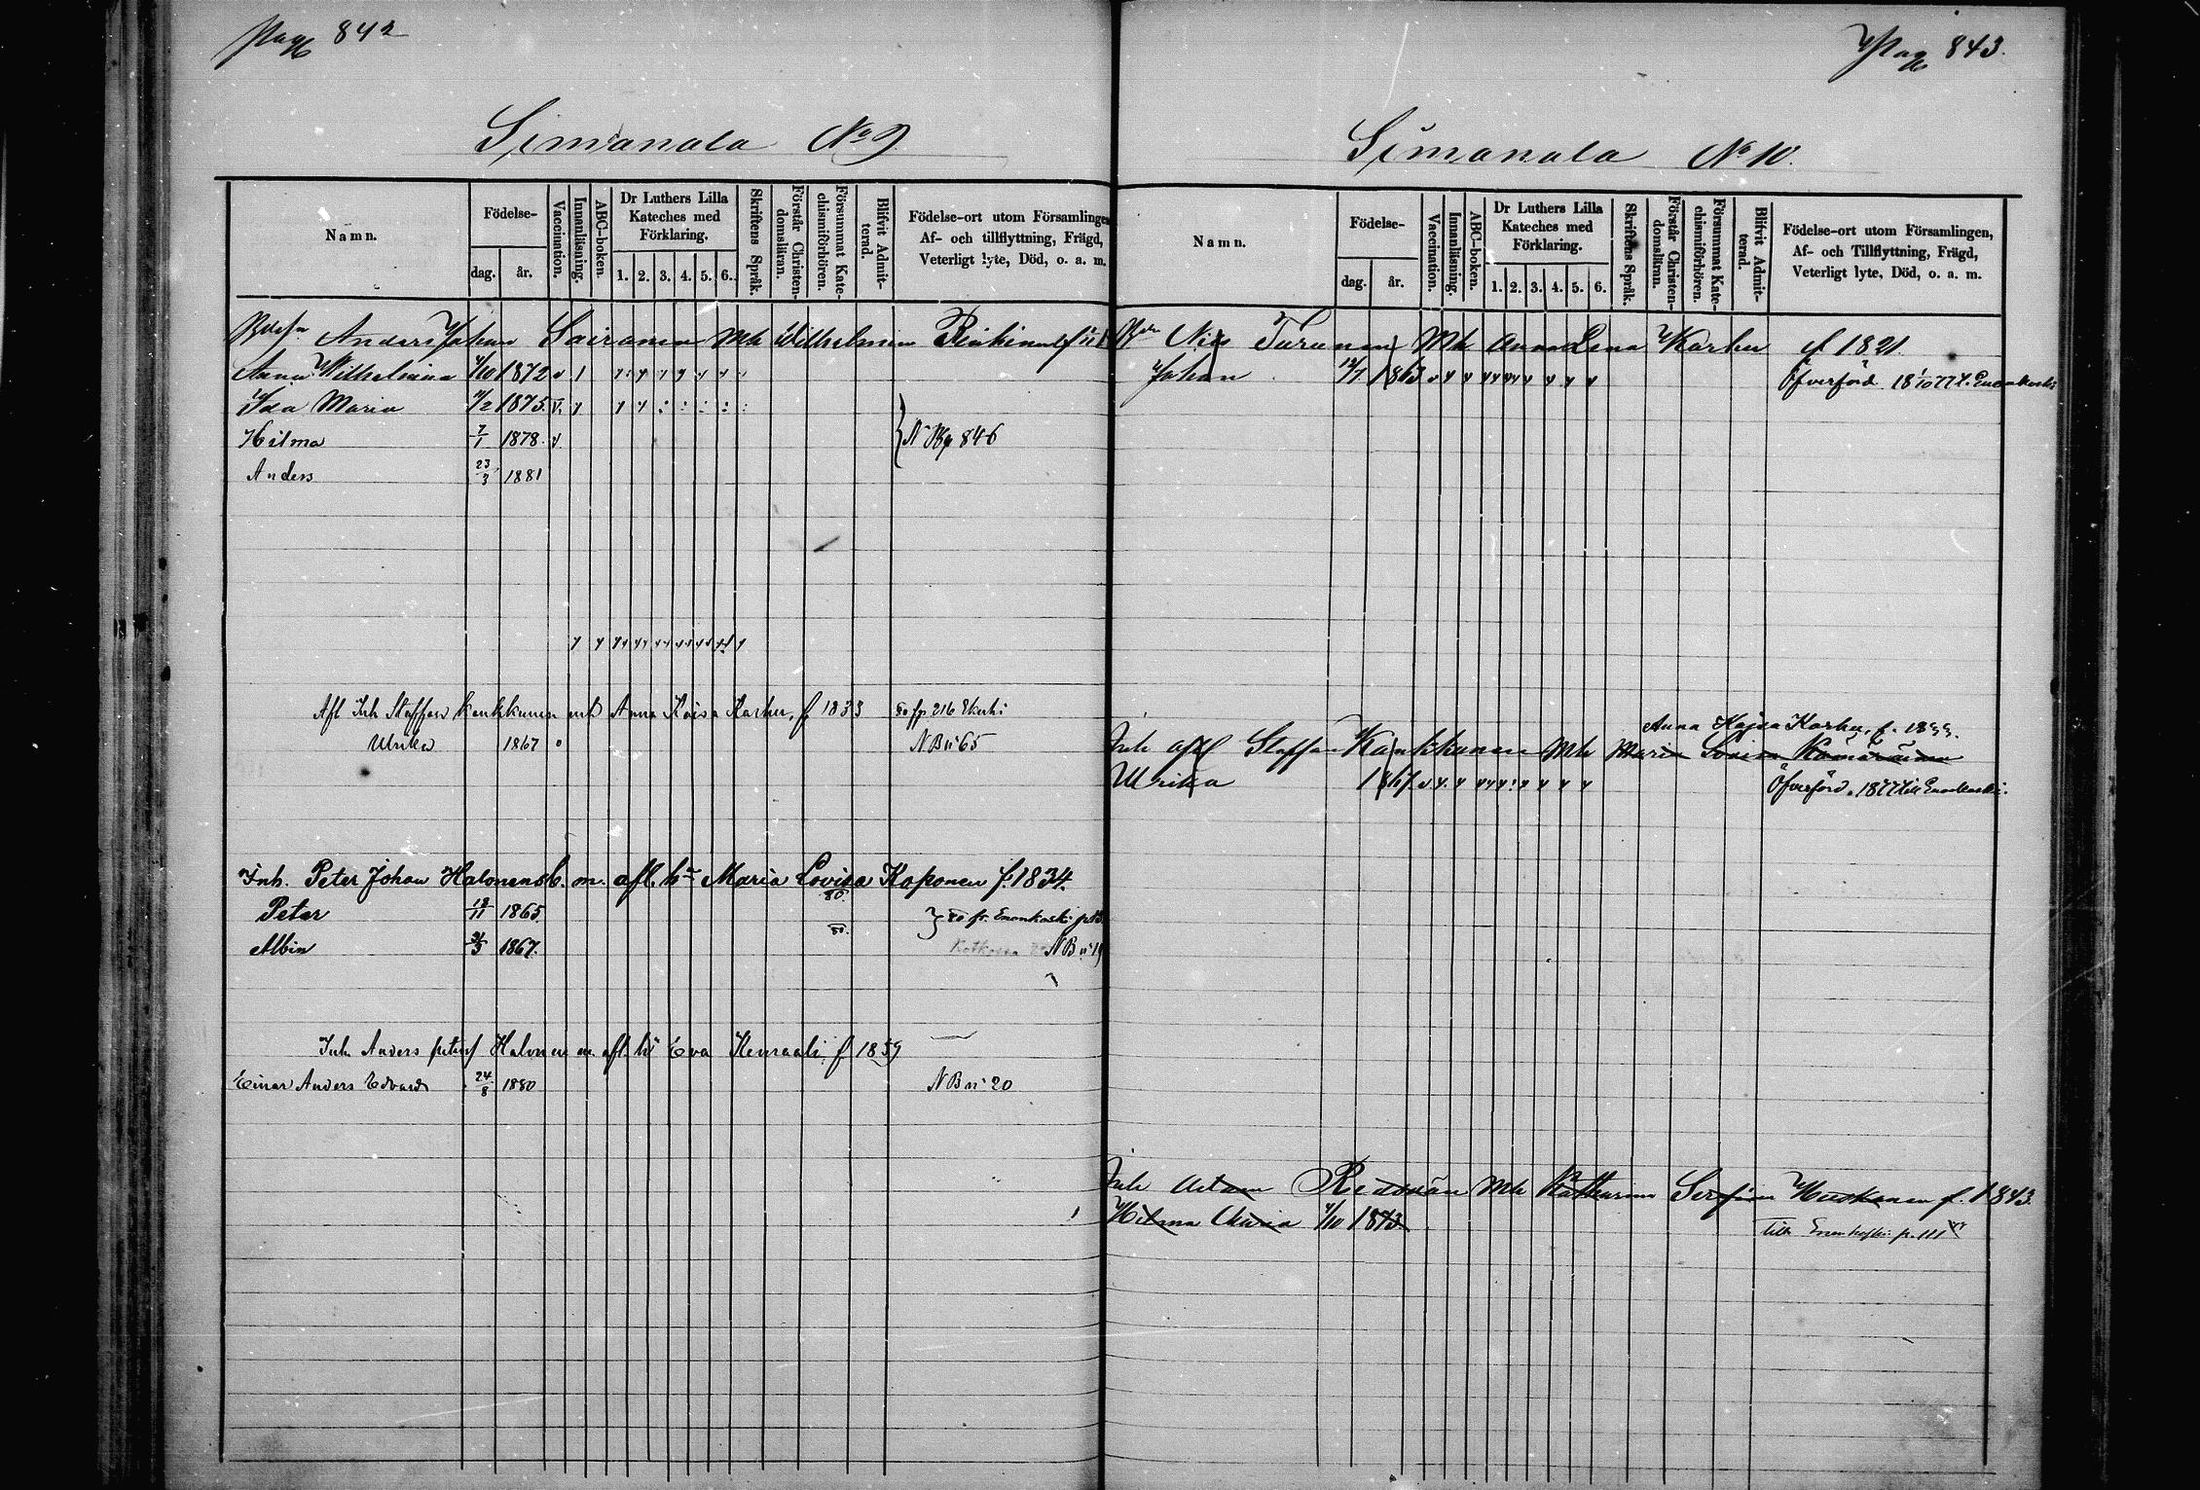 Pag 842
Simanala No 9
Namn.
Födelse-
dag.
år.
Vaccination.
Innanläsning.
ABC-boken.
Dr Luthers Lilla
Kateches med
Förklaring.
1. 2. 3. 4. 5. 6.
Skriftens Språk.
Förstår Christen-
domsläran.
Försummat Kate-
chismiförhören.
Blifvit Admit-
terad.
Födelse-ort utom Församlingen
Af- och tillflyttning, Frägd,
Veterligt lyte, Död, o. a. m.
Anders Johan Sairanen Mh Wilhelmina
Anna Wilhelmina 1872
Ida Maria 1875
Hilma 7/1 1878 v
Anders 23/3 1881
846
Afl Inh Staffan Kaukkunen Anna Kaisa Karhu, f 1833 216
Ulrika 1867 NB n 65
Inh. Peter Johan Halonen m. afl. hu Maria Lovisa Koponen f. 1834.
Peter 18/11 1865 80 fr. Enonkoski
Albin 1867. NB n 19
Inh Anders Halonen m. afl. hu Eva f 1859
Einar Anders Edvard 24/8 1880 NB n 20
Pag 843
Simanala No 10
Namn.
Födelse-
dag.
år.
Vaccination.
Innanläsning.
ABC-boken.
Dr Luthers Lilla
Kateches med
Förklaring.
1. 2. 3. 4. 5. 6.
Skriftens Språk.
Förstår Christen-
domsläran.
Försummat Kate-
chismiförhören.
Blifvit Admit-
terad.
Födelse-ort utom Församlingen,
Af- och Tillflyttning, Frägd,
Veterligt lyte, Död, o. a. m.
Nils Turunen Mh Anna Lena Karhu f 1821.
Johan 1863 Öfverförd
Anna Kajsa Karhu, f.
Inh afl Staffan Kaukkunen Mh Maria Lovisa
Ulrika 1867. Öfverförd 1877 till Enonkoski.
Inh Adam Mh f. 1843.
Hilma Maria 1873
till Enonkoski p. 111